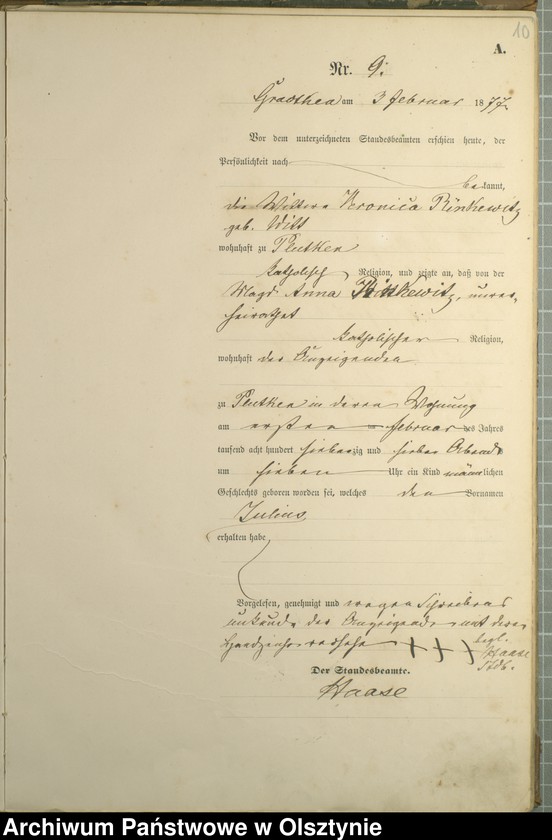 10
A.
Nr. 9.
am 3 Februar 1877.
Vor dem unterzeichneten Standesbeamten erschien heute, der
Persönlichkeit nach
bekannt,
die Wittwe Veronica Rinkewitz
geb. Witt
wohnhaft zu Plutken
katholisch Religion, und zeigte an, daß von der
Magd Anna Rinkewitz, unver-
heirathet
katholischer Religion,
wohnhaft der Anzeigenden
zu Plutken in deren Wohnung
am ersten Februar des Jahres
tausend acht hundert siebenzig und sieben Abends
um sieben Uhr ein Kind männlichen
Geschlechts geboren worden sei, welches den Vornamen
Julius
erhalten habe
Vorgelesen, genehmigt und wegen Schreibens
unkunde der Anzeigende mit deren
Handzeichen versehen +++ begl.
Haase
Stdb.
Der Standesbeamte.
Haase
Archiwum Państwowe w Olsztynie